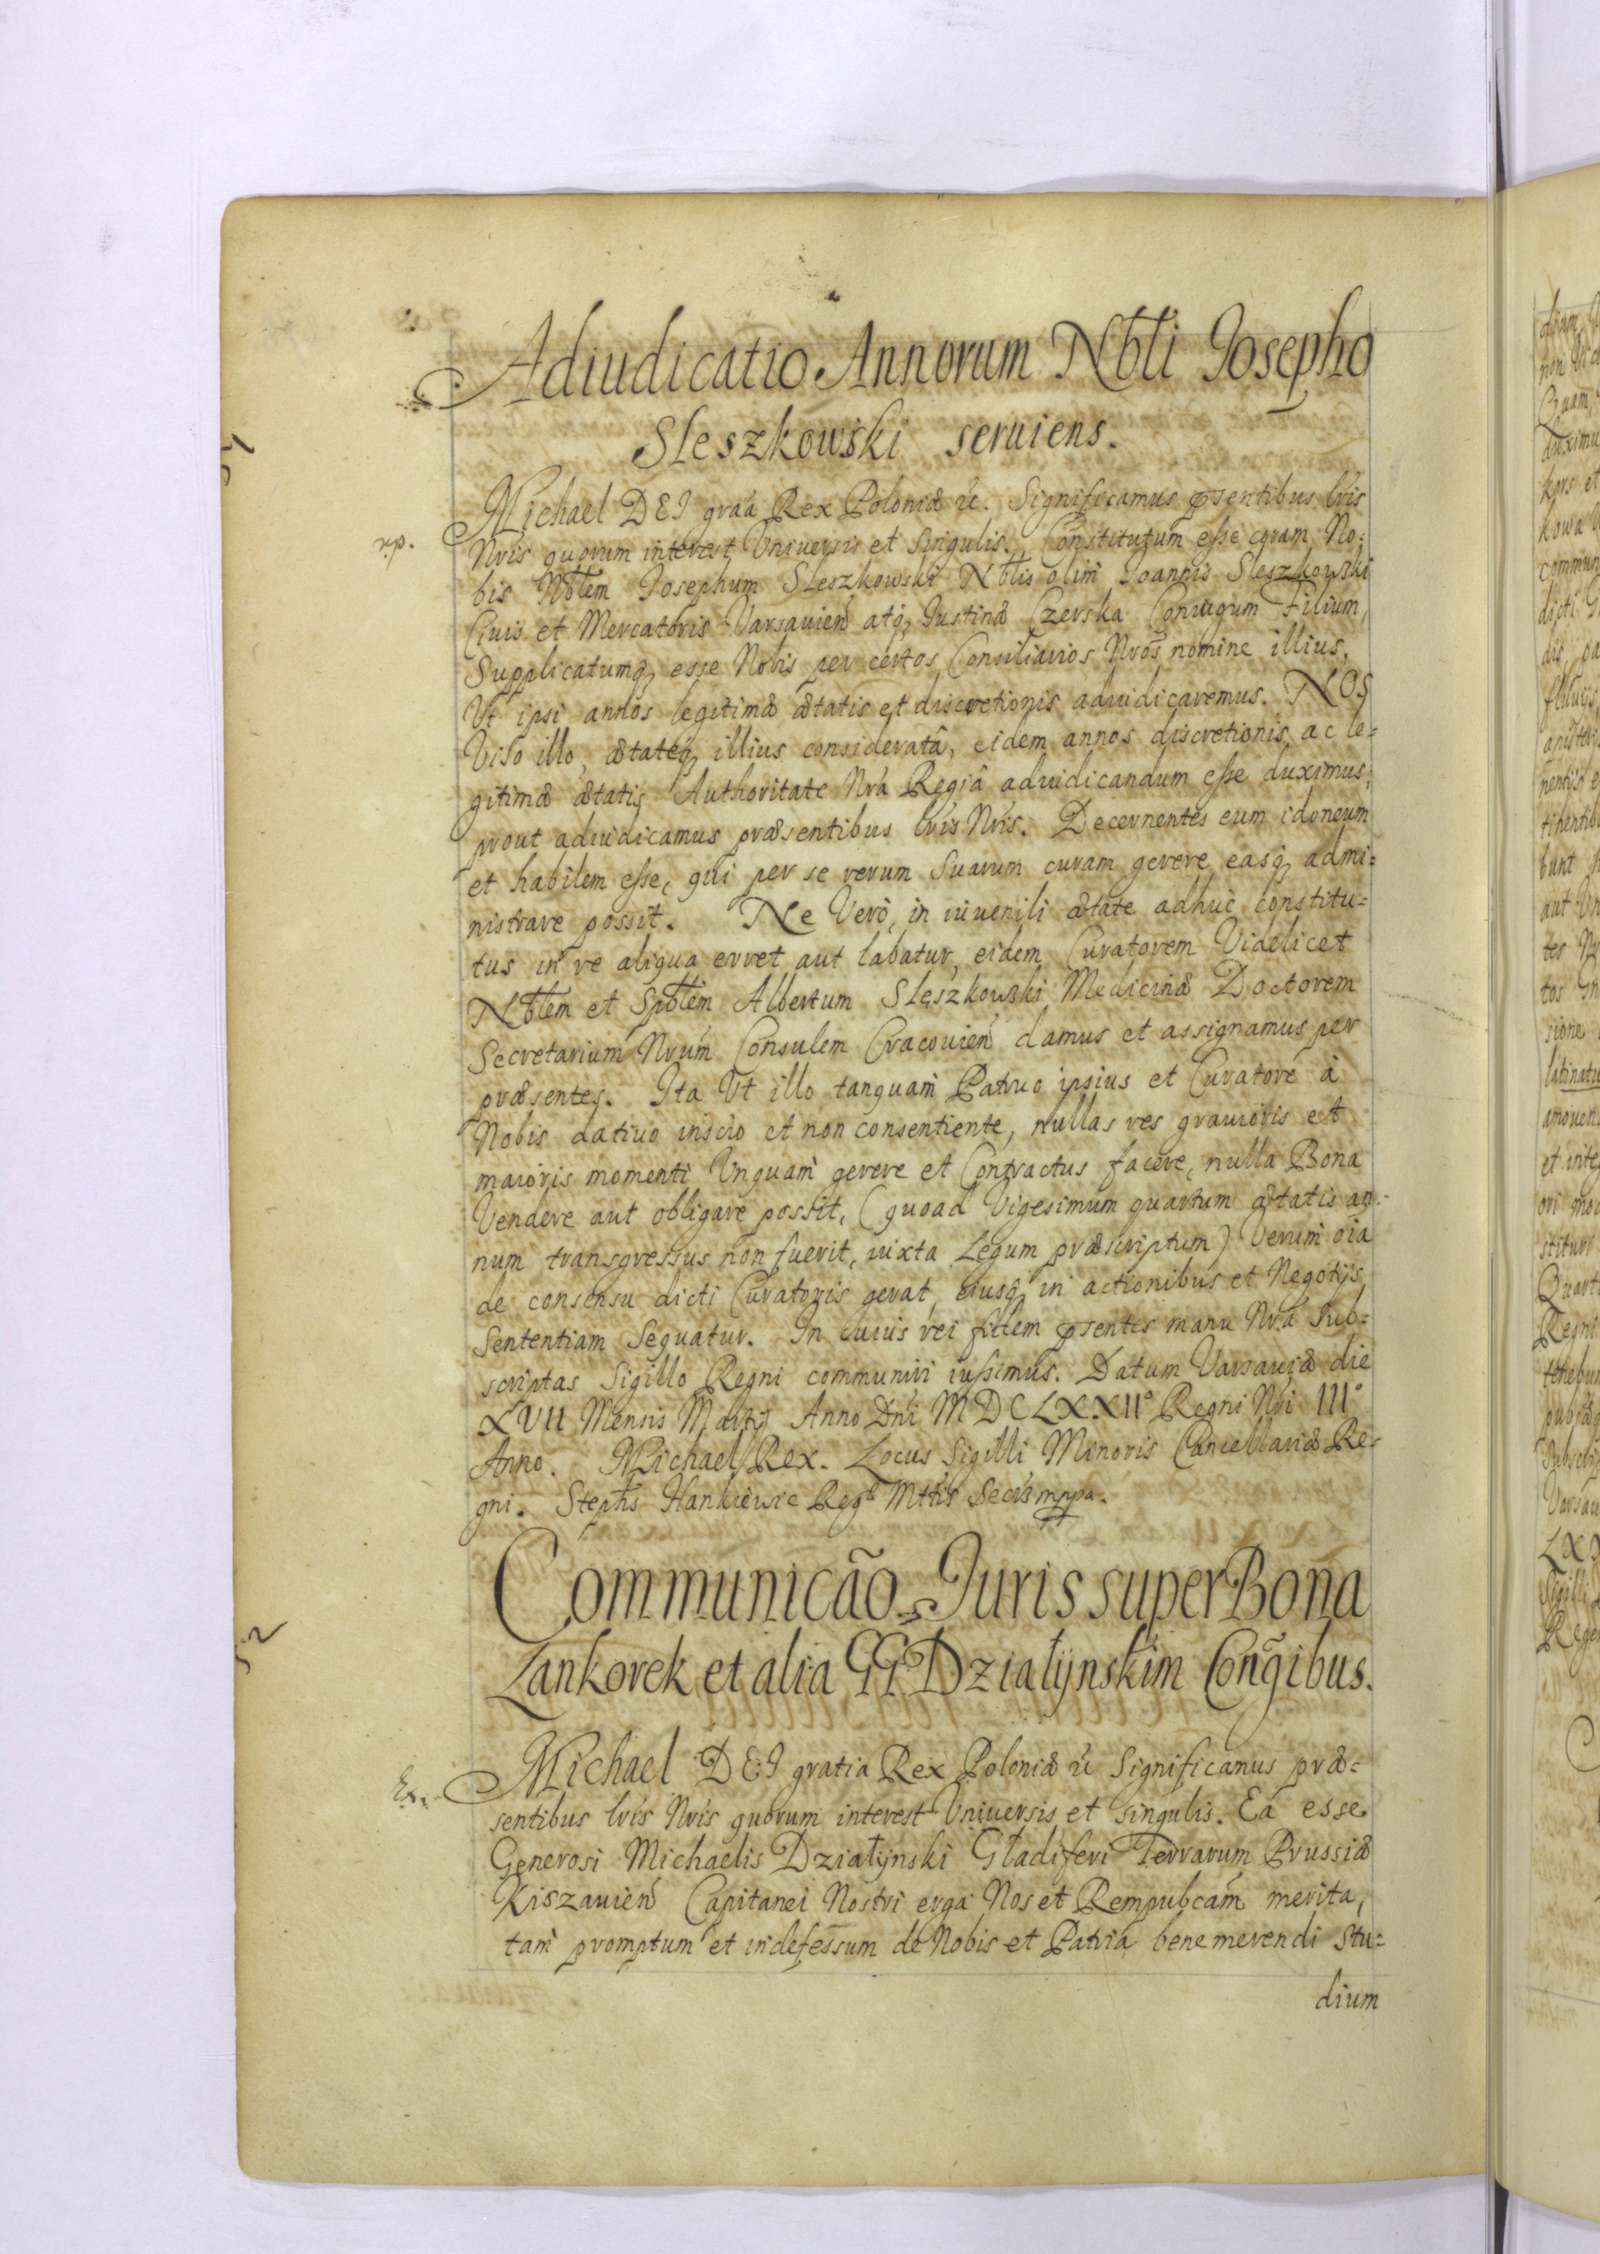 Adiudicatio Annorum Nbli Josepho
Sleszkowski seruiens.
Michael DEI graa Rex Poloniæ &c. Significamus psentibus lris
rp.
Nris quorum interest Vniuersis et Singulis. Constitutum esse coram No=
bis Nblem Josephum Sleszkowski Nblis olim Joannis Sleszkowski
Ciuis et Mercatoris Varsauien atq Justinæ Czerska Coniugum Filium,
Supplicatumq esse Nobis per certos Consiliarios Nros nomine illius,
Vt ipsi annos legitimæ ætatis et discretionis adiudicaremus. NOS
Viso illo, ætateq illius consideratâ, eidem annos discretionis ac le=
gitimæ ætatis Authoritate Nrâ Regiâ adiudicandum esse duximus,
prout adiudicamus præsentibus lris Nris. Decernentes eum idoneum
et habilem esse, qui per se rerum Suarum curam gerere easq admi=
nistrare possit. Ne Verò, in iuuenili ætate adhuc constitu=
tus in re aliqua erret aut labatur, eidem Curatorem Videlicet
Nblem et Spblem Albertum Sleszkowski Medicinæ Doctorem
Secretarium Nrum Consulem Cracouien damus et assignamus per
præsentes. Ita Vt illo tanquam Patruo ipsius et Curatore à
Nobis datiuo inscio et non consentiente, nullas res grauioris et
maioris momenti Vnquam gerere et Contractus facere, nulla Bona
Vendere aut obligare possit, (quoad Vigesimum quartum ætatis an=
num transgressus non fuerit, iuxta Legum præscriptum) Verum oia
de consensu dicti Curatoris gerat, eiusq in actionibus et Negotijs
Sententiam Sequatur. In cuius rei fidem psentes manu Nra Sub=
scriptas Sigillo Regni communiri iussimus. Datum Varsauiæ die
XVII Mensis Martij Anno Dni MDCLXXII° Regni Nri III°
Anno. Michael Rex. Locus Sigilli Minoris Cancellariæ Re=
gni. Stephs Hankiewic Reg Mttis Secris mppa.
Communicão Juris super Bona
Lankorek et alia GG Dziatÿnskim Congibus.
Michael DEI gratia Rex Poloniæ &c Significamus præ=
Ex.
sentibus lris Nris quorum interest Vniuersis et singulis. Ea esse
Generosi Michaelis Dziatÿnski Gladiferi Terrarum Prussiæ
Kiszauien Capitanei Nostri erga Nos et Rempubcam merita,
tam promptum et indefessum de Nobis et Patria bene merendi stu=
dium